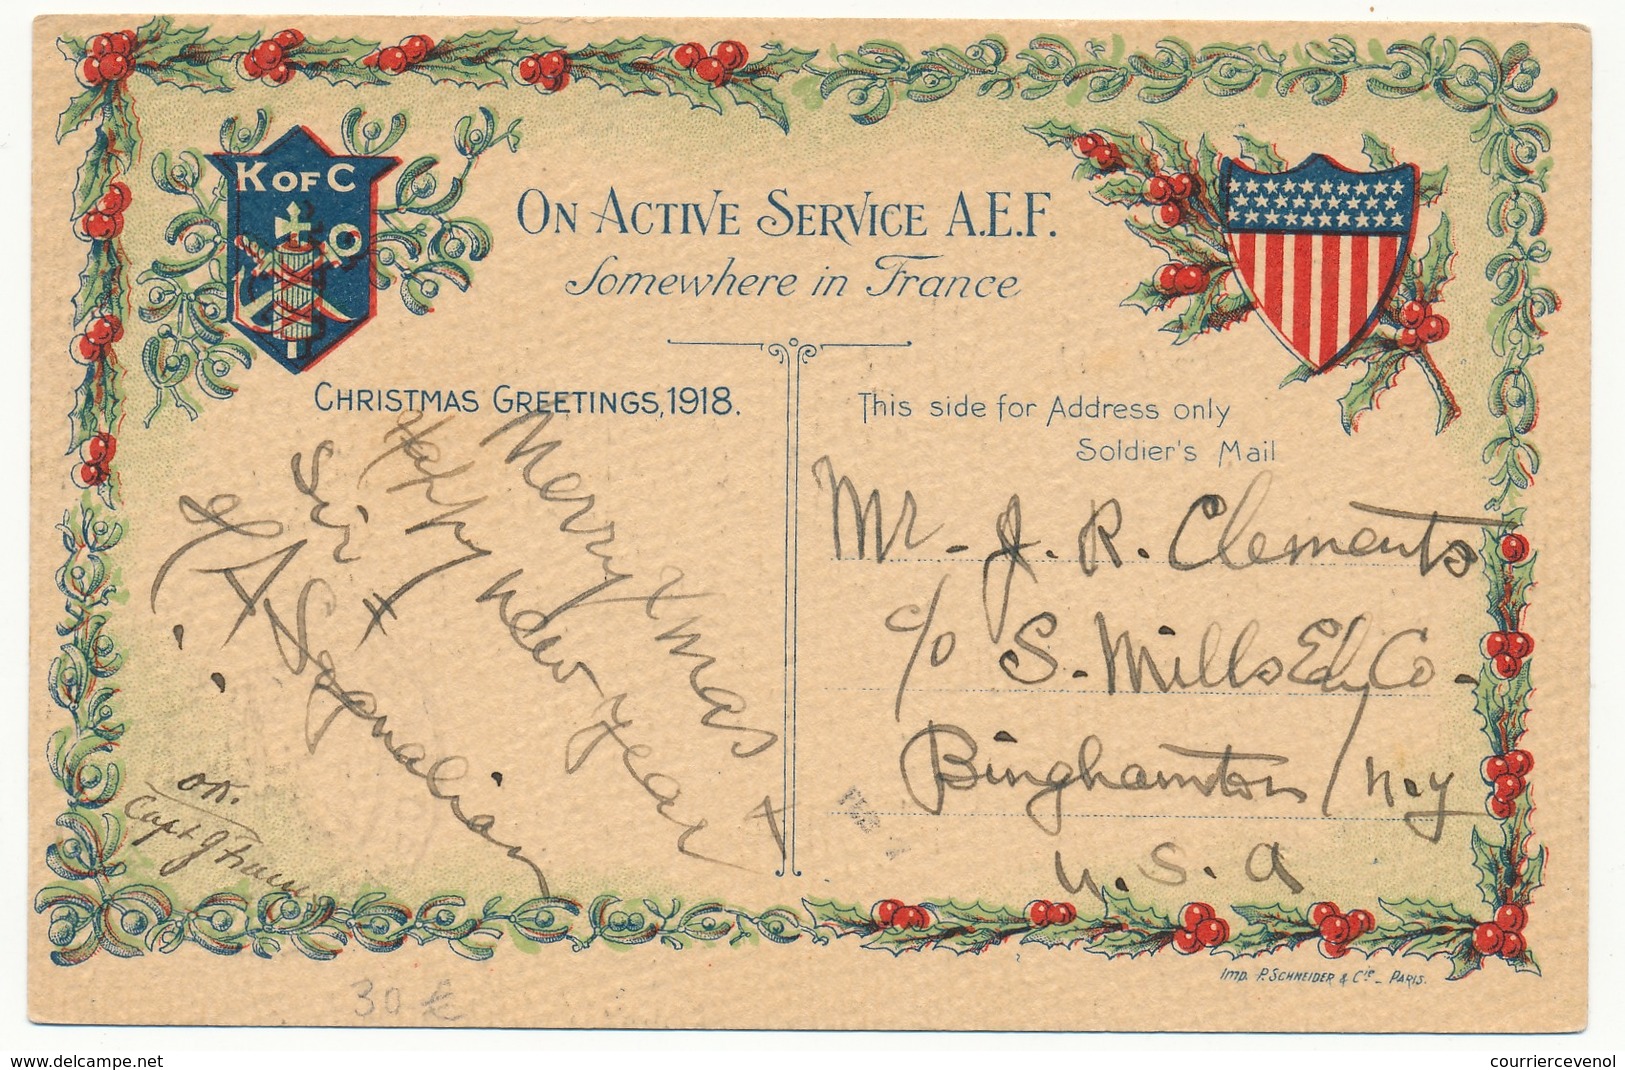 K OF C
ON ACTIVE SERVICE A.E.F.
Somewhere in France
CHRISTMAS GREETINGS, 1918.
This side for Address only
Soldier's Mail
Merry Xmas +
Happy New-year
Sir +
Mr. J. R. Clements
c/o S. Mills Ed, Co.
Binghamton / N.Y
U.S.A
OK.
Capt J
30 €
IMP. P. SCHNEIDER & Cie - PARIS.
www.delcampe.net
courriercevenol